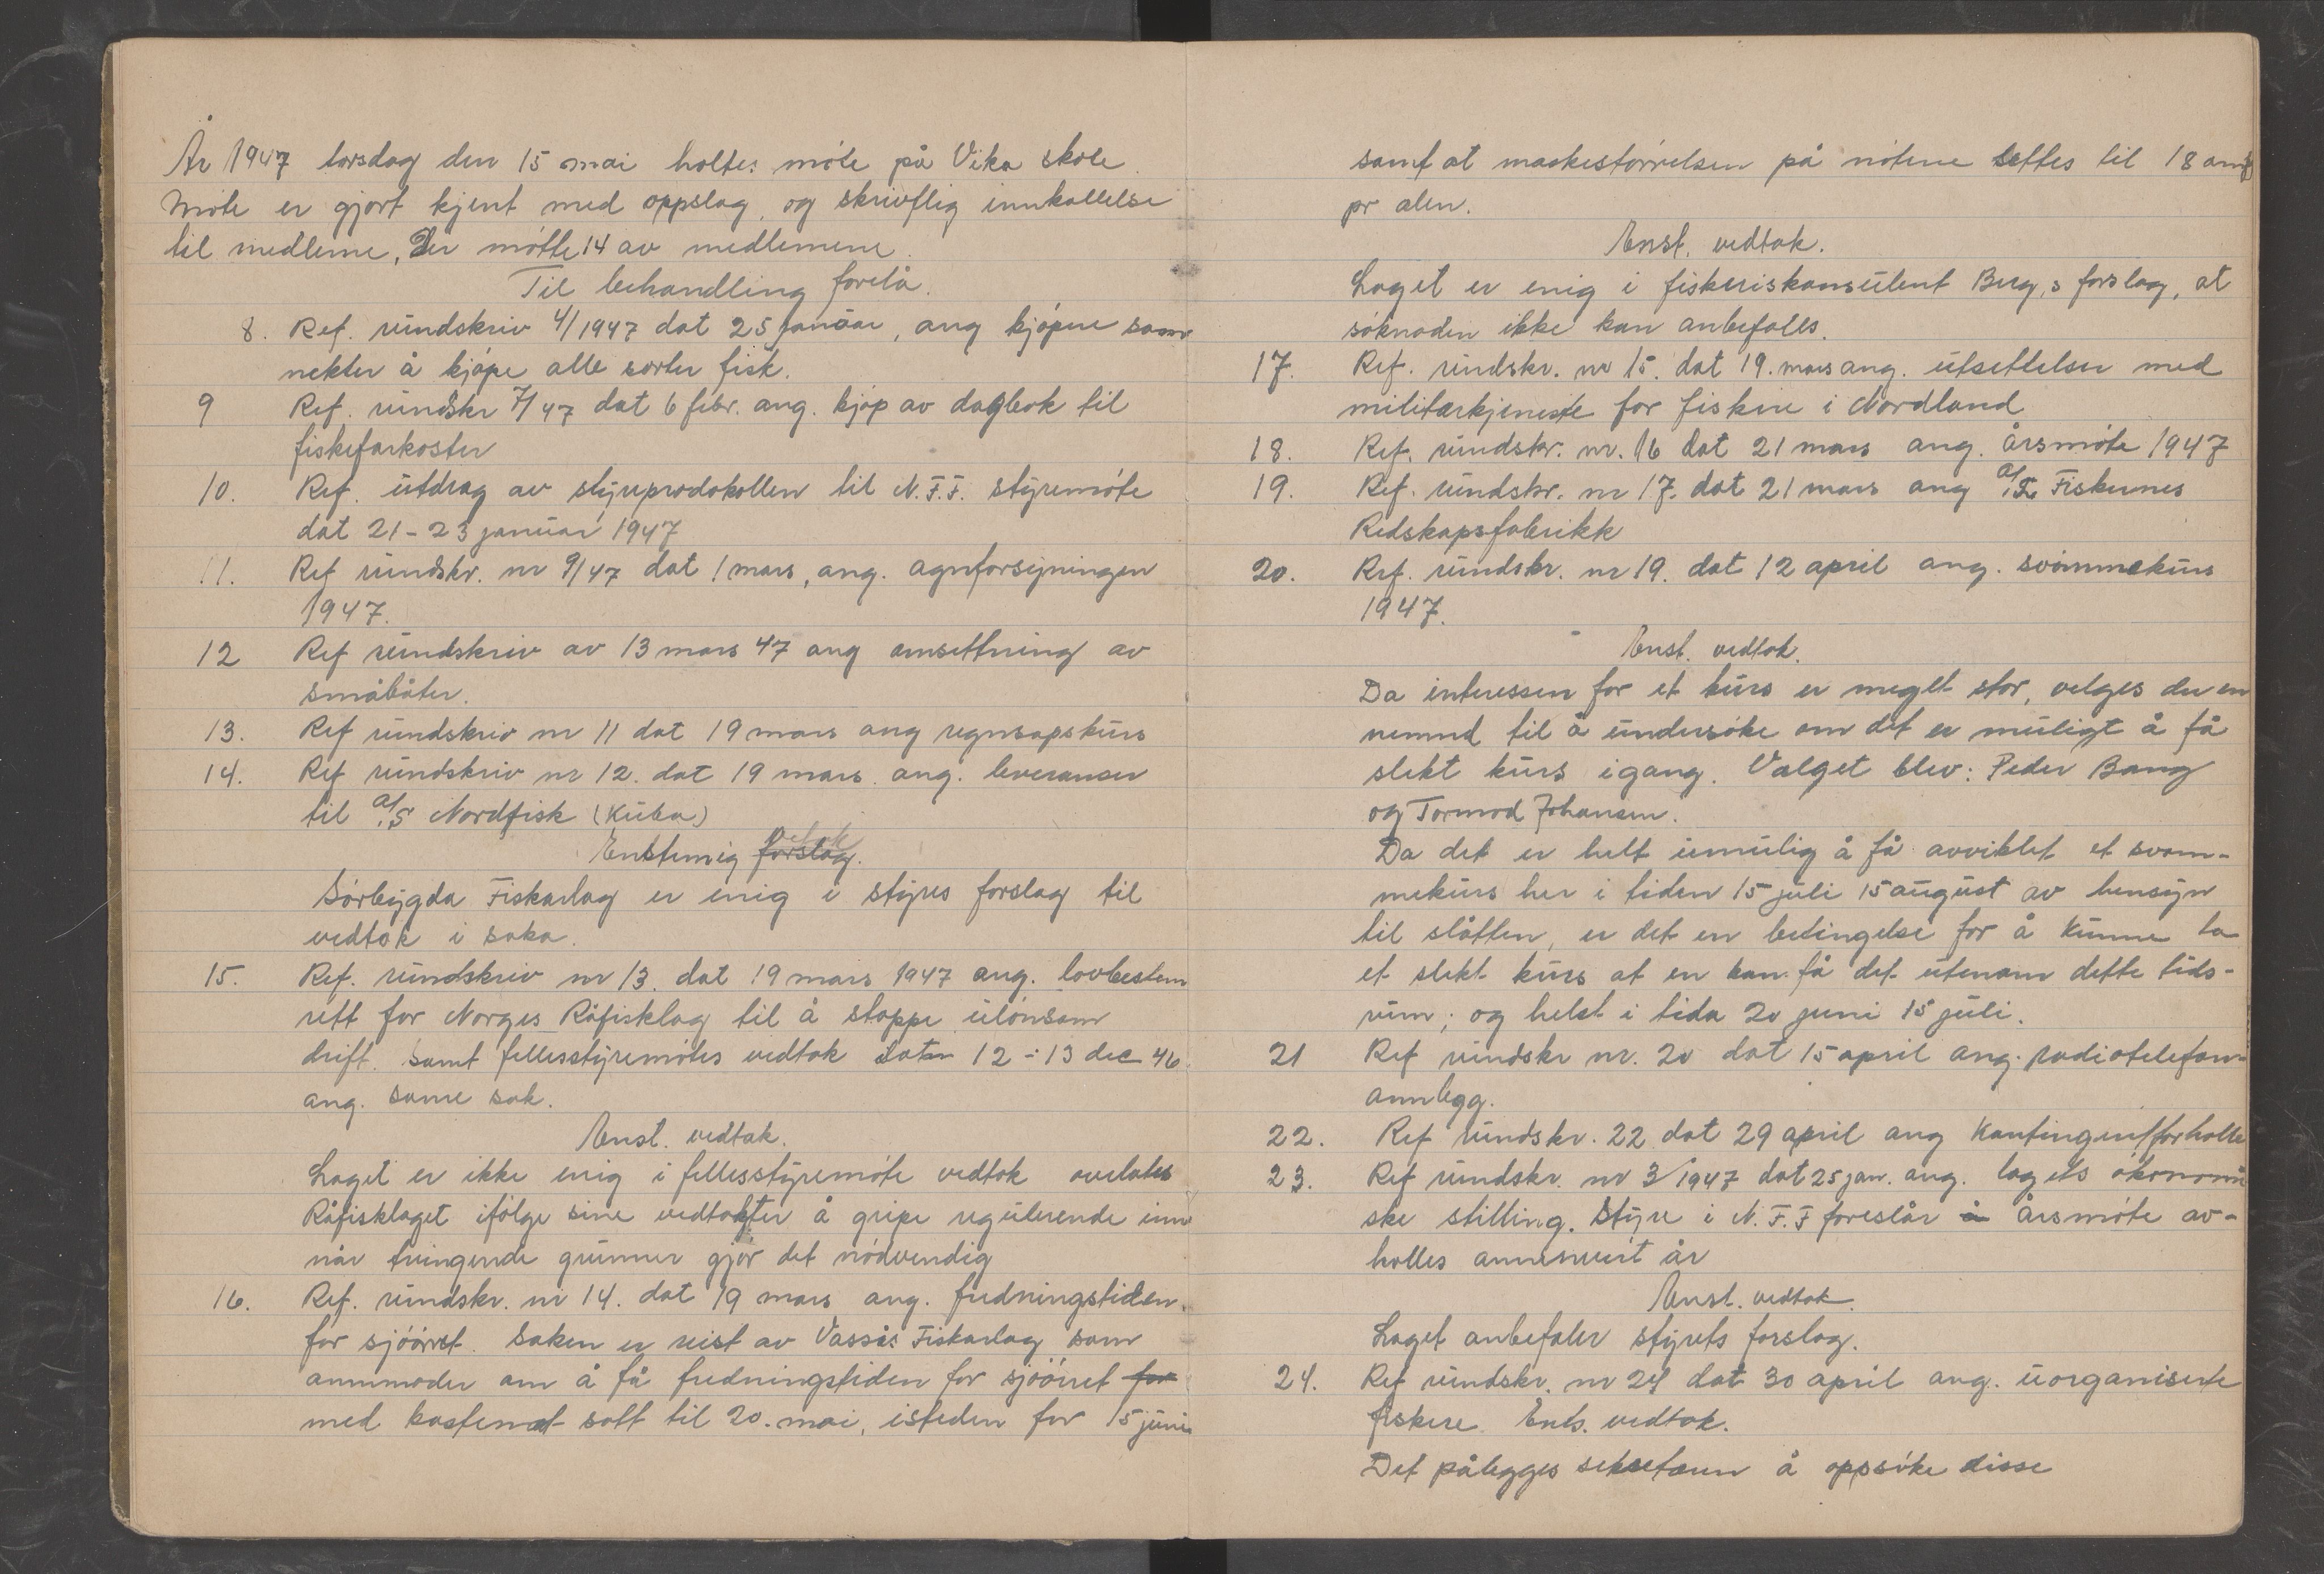 År 1947 torsdag den 15 mai holtes møte på Vika skole.
Møte er gjort kjent med oppslag, og skrivflig innkallelse
til medleme, Der møtte 14 av medlemene.
Til behandling forelå.
8. Ref. rundskriv 4/1947 dat 25 januar, ang kjøpere som
nekter å kjøpe alle sorter fisk.
9 Ref. rundskr 7/47 dat 6 febr. ang. kjøp av dagbok til
fiskefarkoster
10. Ref. utdrag av styreprotokollen til N.F.F. styremøte
dat 21-23 januar 1947
11. Ref rundskr. nr 9/47 dat 1 mars, ang. agnforsyningen
1947.
12 Ref rundskriv av 13 mars 47 ang omsettning av
småbåter.
13. Ref rundskriv nr 11 dat 19 mars ang regnsapskurs
14. Ref rundskriv nr 12. dat 19 mars. ang. leveranser
til a/s Nordfisk (Kuba)
Enstemig forslag.
Sørbygda Fiskarlag er enig i styres forslag til
vedtak i saka.
15. Ref. rundskriv nr 13. dat 19 mars 1947 ang. lovbestem
rett for Norges Råfisklag til å stoppe ulønsom
drift. samt fellesstyremøtes vedtak 12-13 dec 46.
ang. same sak.
Enst. vedtak.
Laget er ikke enig i fellesstyremøte vedtak overlates
Råfisklaget ifølge sine vedtakter å gripe regulerende inn
når tvingende grunner gjør det nødvendig
16. Ref. rundskr. nr 14. dat 19 mars ang. fredningstiden.
for sjøørret. Saken er reist av Vassås Fiskarlag som
annmoder om å få fredningstiden for sjøørret for
med kastenot satt til 20. mai, isteden for 15 juni
samt at maskestørrelsen på nøtene settes til 18 omf
pr alen.
Enst. vedtak.
Laget er enig i fiskeriskonsulent Berg,s forslag, at
søknaden ikke kan anbefalls.
17. Ref. rundskr. nr 15. dat 19. mars ang. utsettelser med
militærkjeneste for fiskere i Nordland
18. Ref. rundskr. nr. 16 dat 21 mars ang. årsmøte 1947
19. Ref. rundskr. nr 17. dat 21 mars ang Fiskernes
Redskapsfabrikk
20. Ref. rundskr. nr 19. dat 12 april ang. svømmekurs
1947.
Enst. vedtak.
Da interessen for et kurs er meget stor, velges der en
nemnd til å undersøke om det er muligt å få
slikt kurs igang. Valget blev: Peder Bang
og Tormod Johansen.
Da det er helt umulig å få avviklet et svøm-
mekurs her i tiden 15 juli 15 august av hensyn
til slåtten, er det en betingelse for å kunne ta
et slikt kurs at en kan få det utenom dette tids-
rum; og helst i tida 20 juni 15 juli.
21 Ref rundskr nr. 20 dat 15 april ang. radiotelefon-
annlegg.
22. Ref rundskr. 22 dat 29 april ang Kontingentforholle
23. Ref rundskr. nr 3/1947 dat 25 jan. ang. lagets økonomi
ske stilling. Styre i N.F.F foreslår å årsmøte av-
holles annenvert år
Enst. vedtak.
Laget anbefaler styrets forslag.
24. Ref rundskr. nr 24 dat 30 april ang. uorganiserte
fiskere. Ents. vedtak.
Det pålegges sekretæren å oppsøke disse